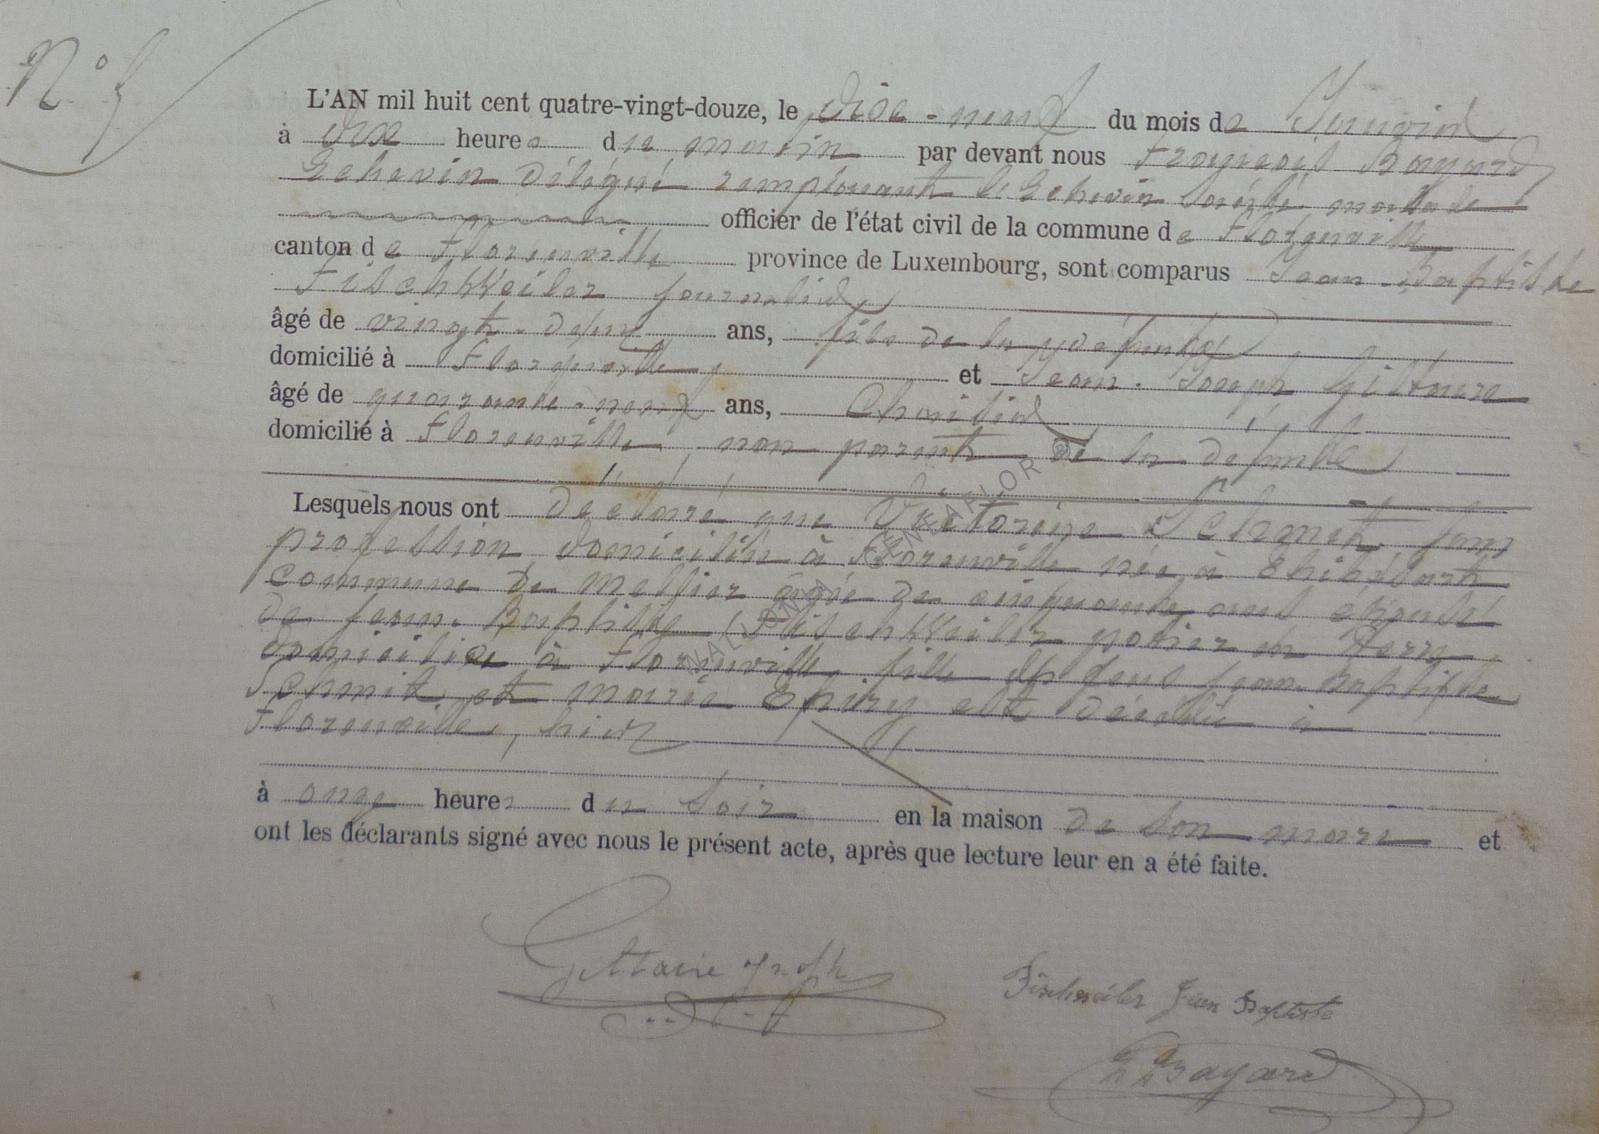 N° 5
L'AN mil huit cent quatre-vingt-douze, le dixe-neuf du mois de Janvier
à dix heures du matin par devant nous François Bayard
Echevin délégué remplaçant l'Echevin malade
officier de l'état civil de la commune de Florenville
canton de Florenville province de Luxembourg, sont comparus Jean-Baptiste
Fischweiler journalier
âgé de vingt-deux ans, fils de la défunte
domicilié à Florenville et Jean-Joseph Gillaire
âgé de quarante-neuf ans,
domicilié à Florenville, non parent de la défunte
Lesquels nous ont déclaré que Victorine Schmit sans
profession domiciliée à Florenville née à Thibessart
commune de Mellier âgée de cinquante ans épouse
de Jean-Baptiste Fischweiler potier en terre
domicilié à Florenville, fille de feus Jean-Baptiste
Schmit et Marie Thiry est décédée à
Florenville, hier
à onze heures du soir en la maison de son mari et
ont les déclarants signé avec nous le présent acte, après que lecture leur en a été faite.
Joseph
Fischweiler Jean Baptiste
Bayard